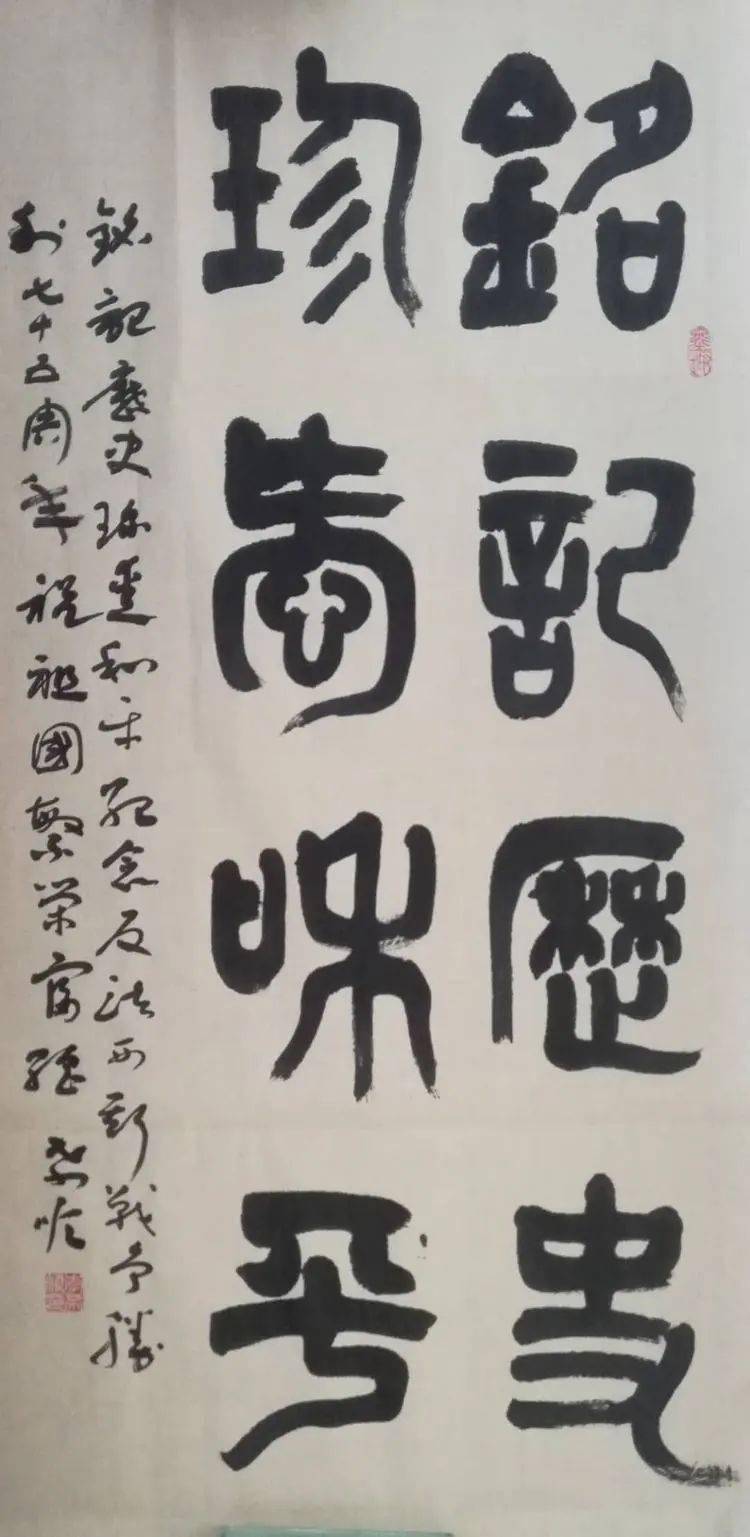 銘記歷史
珍愛和平
銘記歷史珍愛和平紀念反法西斯戰爭勝
利七十五周年祝祖國繁榮富強